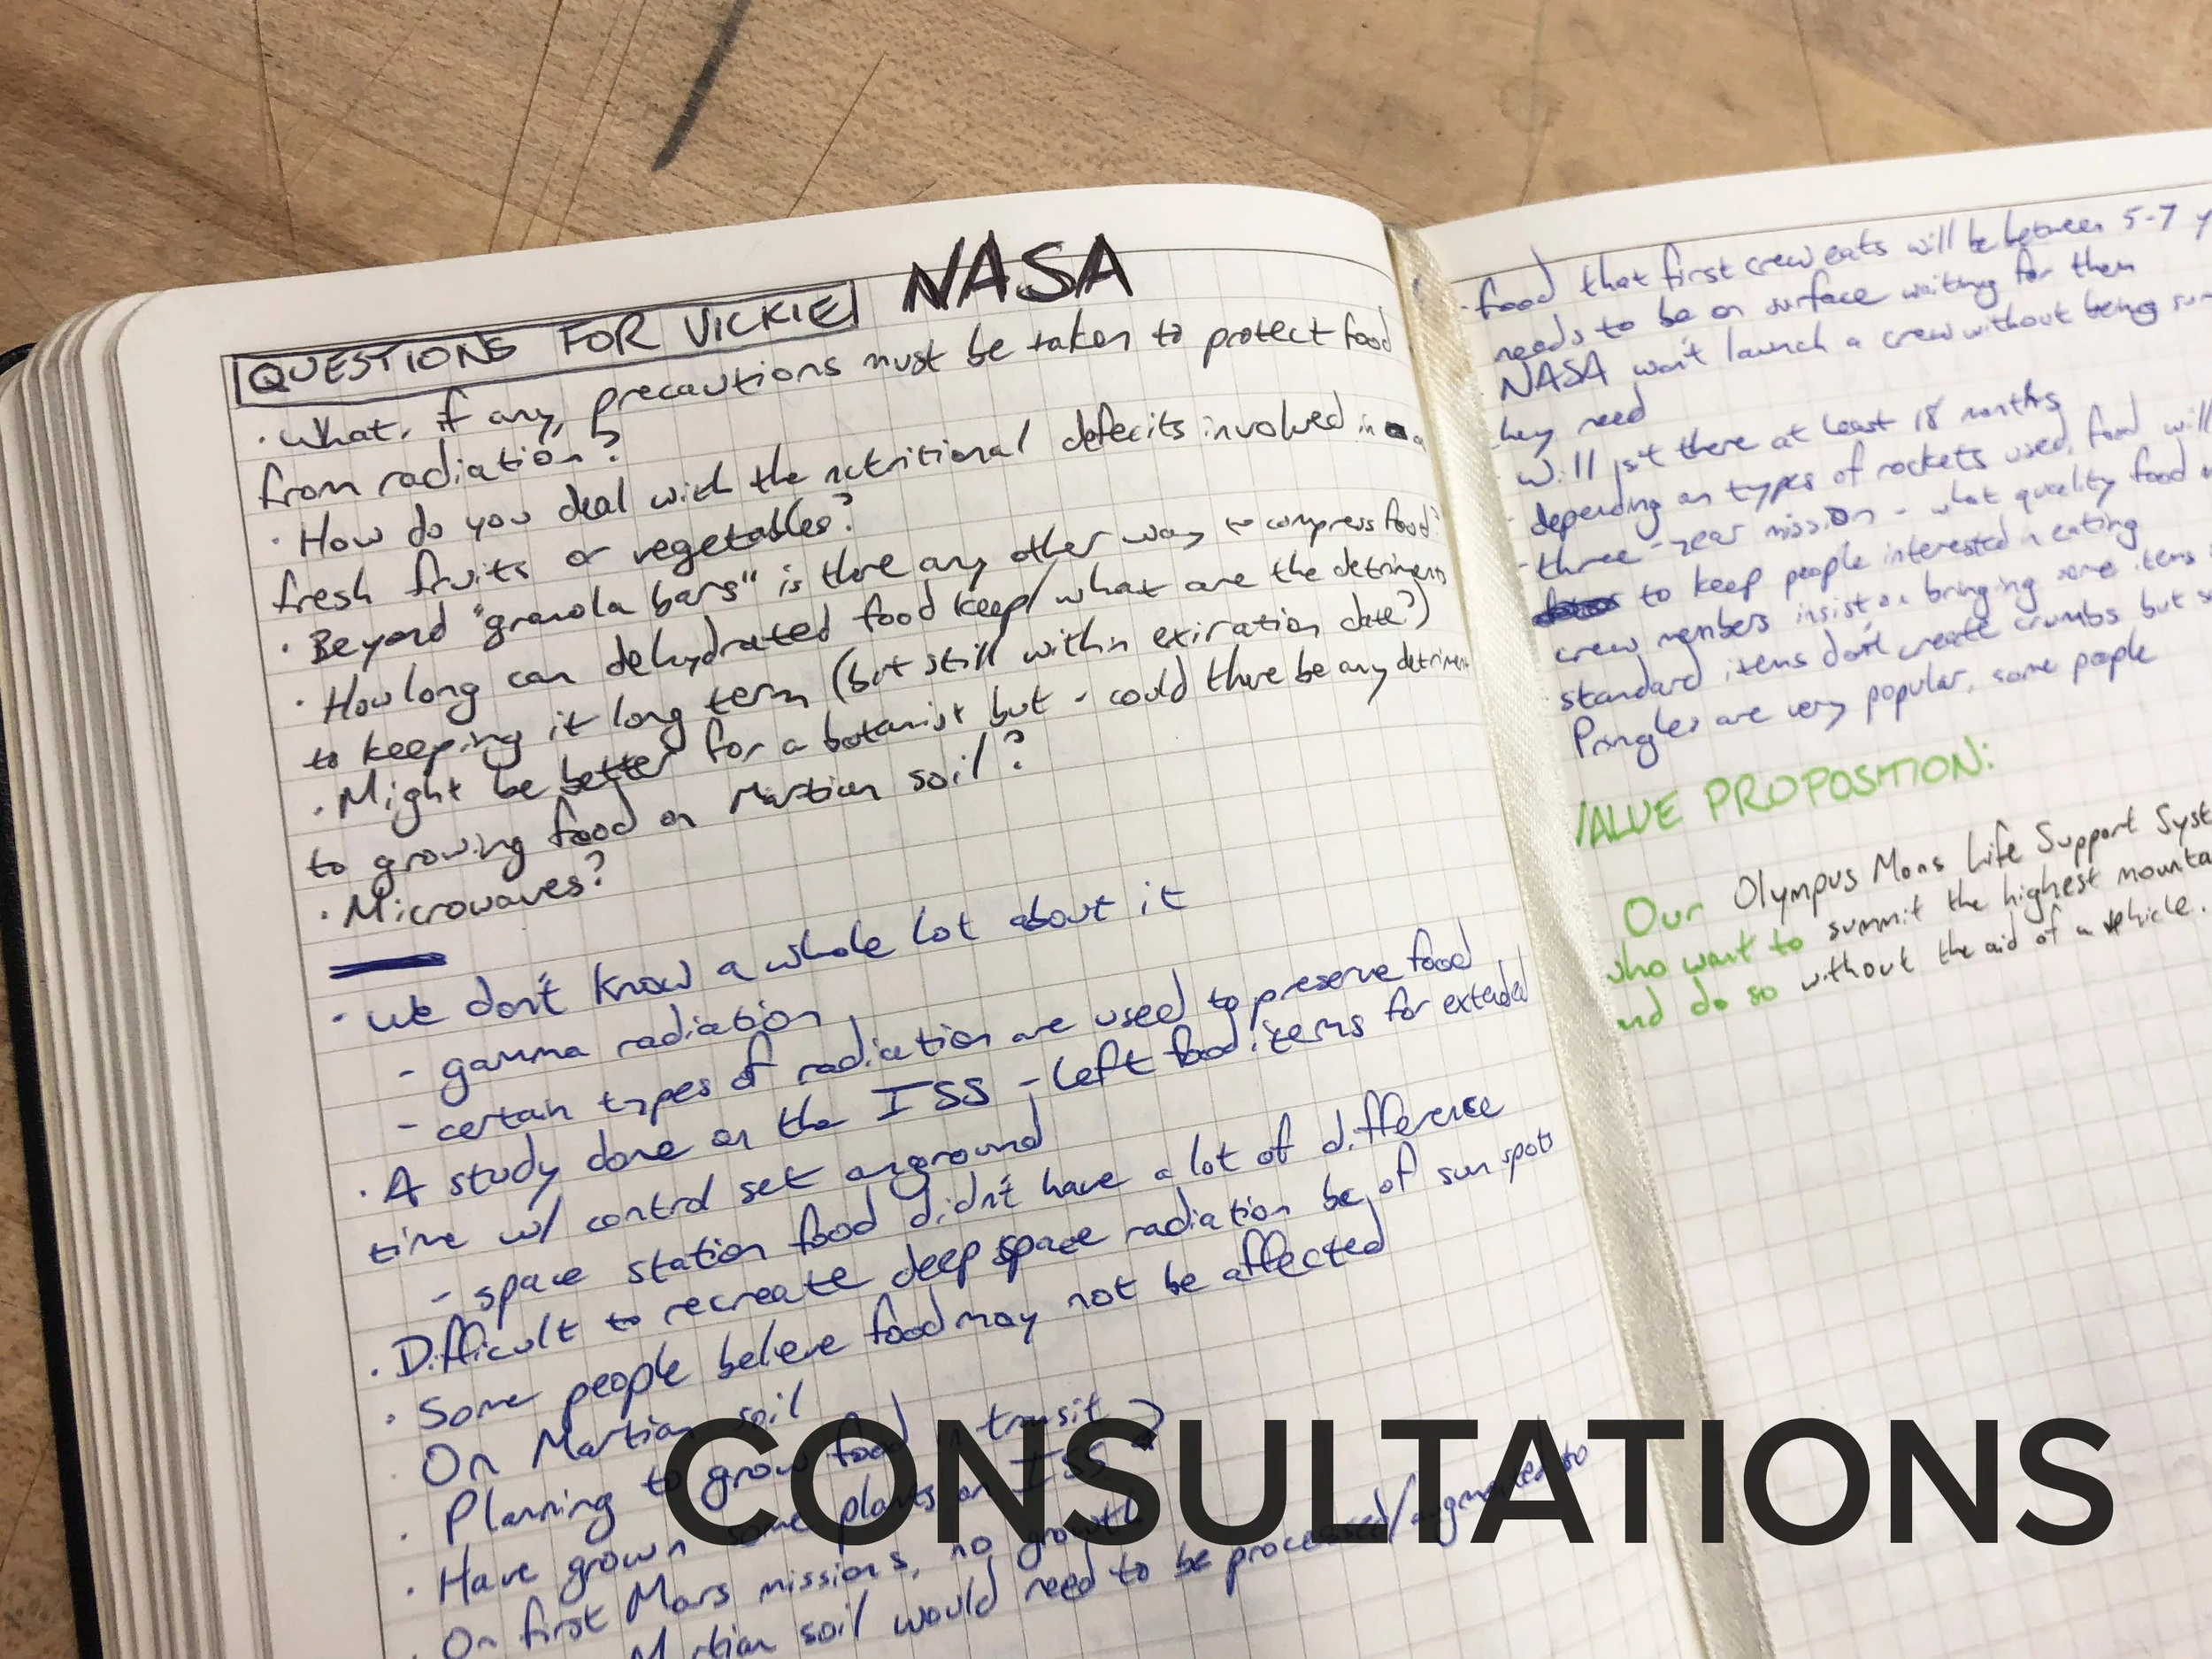 QUESTIONS FOR VICKIE NASA
· What, if any, precautions must be taken to protect food
from radiation?
· How do you deal with the nutritional defecits involved in a
fresh fruits or vegetables?
· Beyond "granola bars" is there any other way to compress food?
· How long can dehydrated food keep/what are the detriments
to keeping it long term (but still within exiration date?)
· Might be better for a botanist but - could there be any detrimen
to growing food on Martian soil?
· Microwaves?
· We don't know a whole lot about it
- gamma radiation
- certain types of radiation are used to preserve food
· A study done on the ISS - left food items for extended
time w/ control set on ground
- space station food didn't have a lot of difference
· Difficult to recreate deep space radiation bc of sun spots
· Some people believe food may not be affected
· On Martian soil
· Planning to grow food in transit
· Have grown some plants on ISS
· On first Mars missions, no growth
Martian soil would need to be processed/augmented to
· food that first crew eats will be between 5-7 y
needs to be on surface waiting for them
NASA won't launch a crew without being sur
hey need
· Will sit there at least 18 months
· depending on types of rockets used, food will
· three-year mission - what quality food
to keep people interested in eating
crew members insist on bringing some items
· standard items don't create crumbs but s
Pringles are very popular, some people
VALUE PROPOSITION:
Our Olympus Mons Life Support Syst
who want to summit the highest mounta
and do so without the aid of a vehicle.
CONSULTATIONS